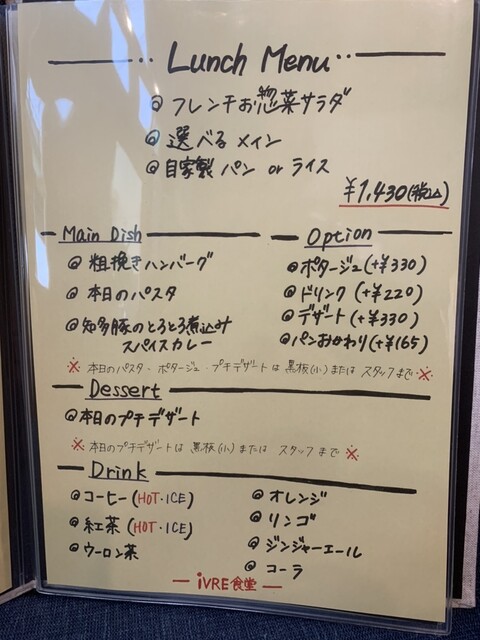 Lunch Menu
◎ フレンチお惣菜サラダ
◎ 選べるメイン
◎ 自家製 パン or ライス
¥1,430(税込)
Main Dish
◎ 粗挽きハンバーグ
◎ 本日のパスタ
◎ 知多豚のとろとろ煮込み
スパイスカレー
Option
◎ ポタージュ(+¥330)
◎ ドリンク(+¥220)
◎ デザート(+¥330)
◎ パンおかわり(+¥165)
※ 本日のパスタ・ポタージュ・プチデザートは 黒板(小)または スタッフまで ※
Dessert
◎ 本日のプチデザート
※ 本日のプチデザートは 黒板(小)または スタッフまで ※
Drink
◎ コーヒー(HOT・ICE)
◎ 紅茶(HOT・ICE)
◎ ウーロン茶
◎ オレンジ
◎ リンゴ
◎ ジンジャーエール
◎ コーラ
— iVRE食堂 —